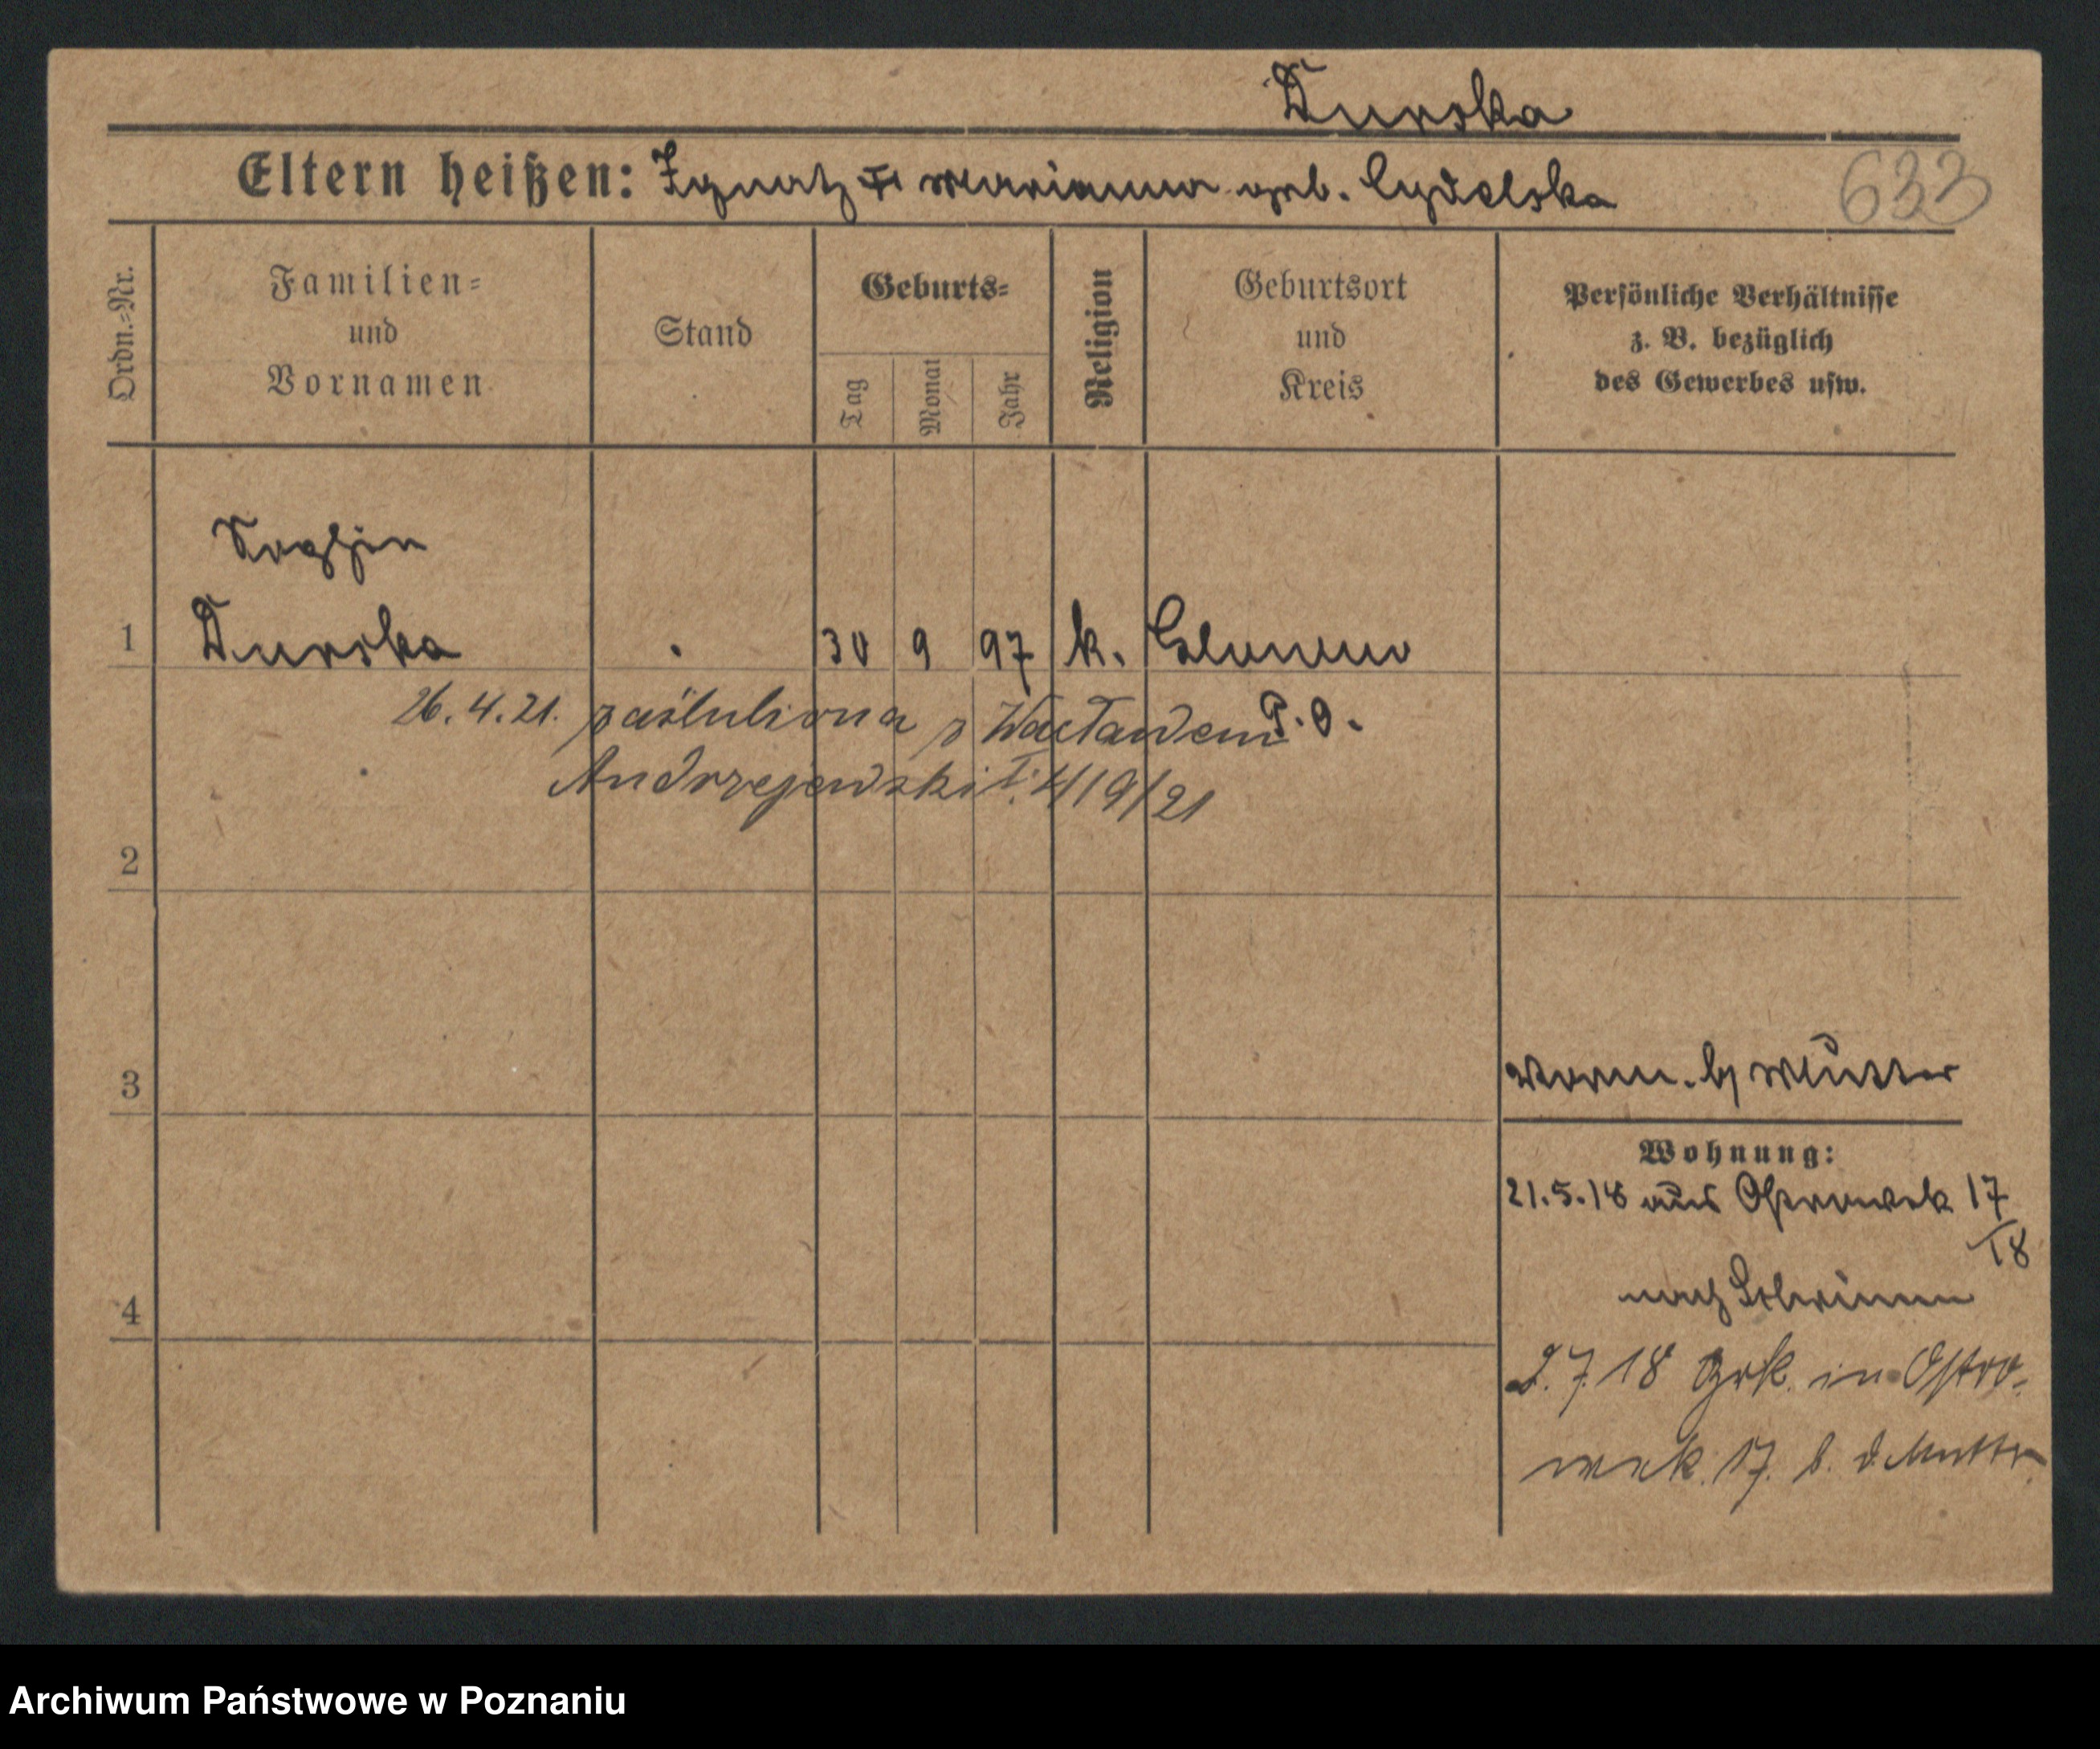 Durska
Eltern heißen: Ignatz † Marianna geb. Cydelska
633
Ordn.=Nr.
Familien=
und
Vornamen
Stand
Geburts=
Tag
Monat
Jahr
Religion
Geburtsort
und
Kreis
Persönliche Verhältnisse
z. B. bezüglich
des Gewerbes usw.
Sophia
1 Durska 30 9 97 k.
P. O.
26.4.21. zaślubiona z Wacławem
Andrzejewski 4/9/21
2
3
b/ Mutter
Wohnung:
21.5.18 aus Ostrowek 17
/18
4
nach
2.7.18 zrk. in Ostro-
wek 17. b. d. Mutter
Archiwum Państwowe w Poznaniu